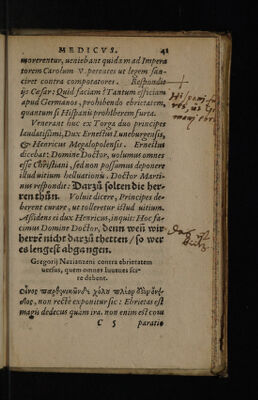 MEDICVS. 41
morerentur, ueniebant quidam ad Impera
torem Carolum V. petentes ut legem san-
ciret contra compotatores. Respondit
ijs Cæsar: Quid faciam? Tantum efficiam
apud Germanos, prohibendo ebrietatem,
quantum si Hispanis prohiberem furta.
Venerant huc ex Torga duo principes
laudatissimi, Dux Ernestus Luneburgensis,
& Henricus Megalopolensis. Ernestus
dicebat: Domine Doctor, uolumus omnes
esse Christiani, sed non possumus deponere
illud uitium helluationũ. Doctor Marti-
nus respondit: Darzů solten die her-
ren thůn. Voluit dicere, Principes de-
berent curare, ut tolleretur istud uitium.
Assidens ei dux Henricus, inquit: Hoc fa-
cimus Domine Doctor, denn weñ wir
herrẽ nicht darzů thetten / so wer
es lengest abgangen.
Gregorij Nazianzeni contra ebrietatem
uersus, quem omnes iuuenes sci-
re debent.
non rectè exponitur sic: Ebrietas est
magis dedecus quàm ira. non enim est com
C 5 paratio